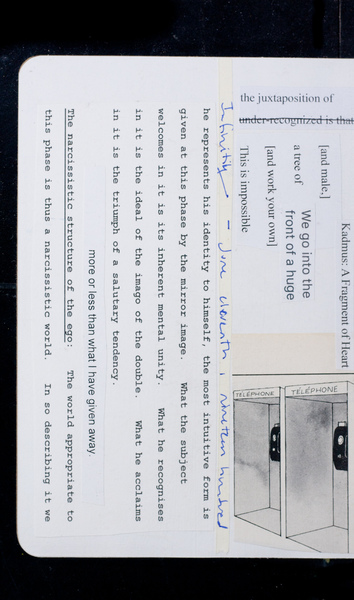 the juxtaposition of
under-recognized is that
[and male,]
a tree of
We go into the
front of a huge
[and work your own]
This is impossible
Kadmus: A Fragment of Heart
TÉLÉPHONE
TÉLÉPHONE
Infinitily – June eleventh, nineteen hundred
he represents his identity to himself, the most intuitive form is
given at this phase by the mirror image. What the subject
welcomes in it is its inherent mental unity. What he recognises
in it is the ideal of the imago of the double. What he acclaims
in it is the triumph of a salutary tendency.
more or less than what I have given away.
The narcissistic structure of the ego: The world appropriate to
this phase is thus a narcissistic world. In so describing it we